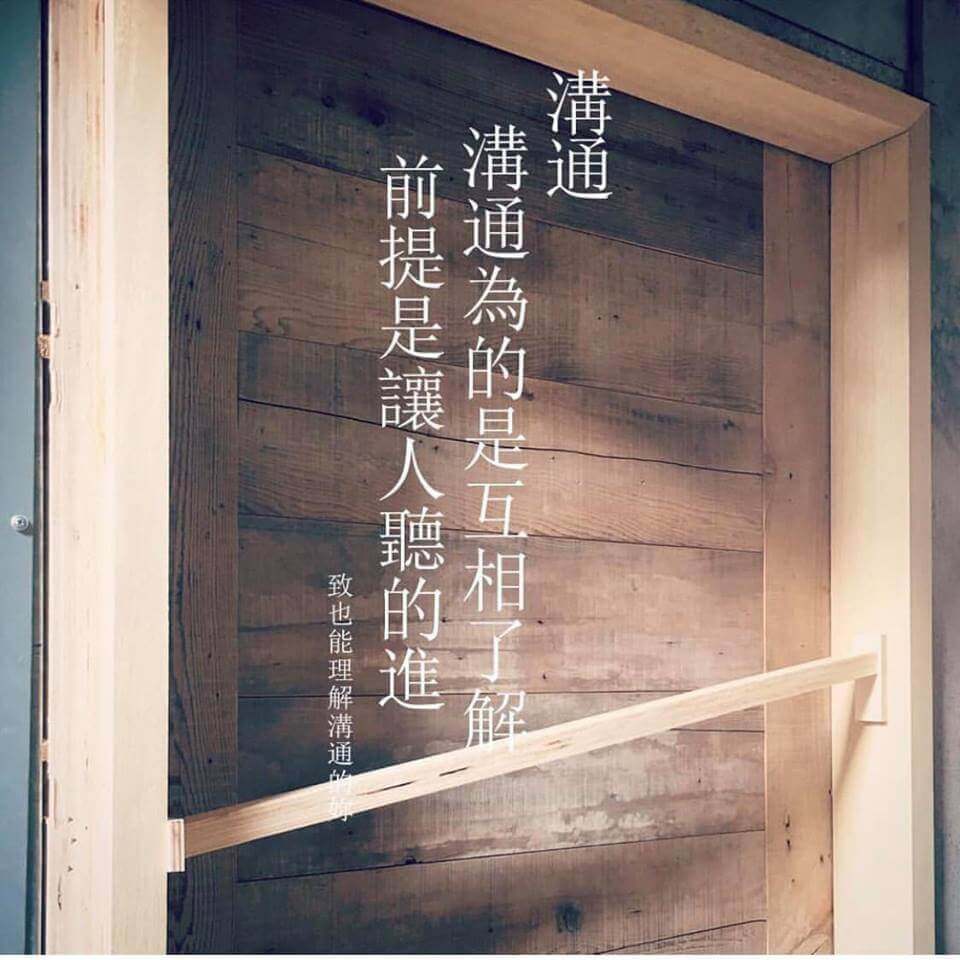 溝通
溝通為的是互相了解
前提是讓人聽的進
致也能理解溝通的妳